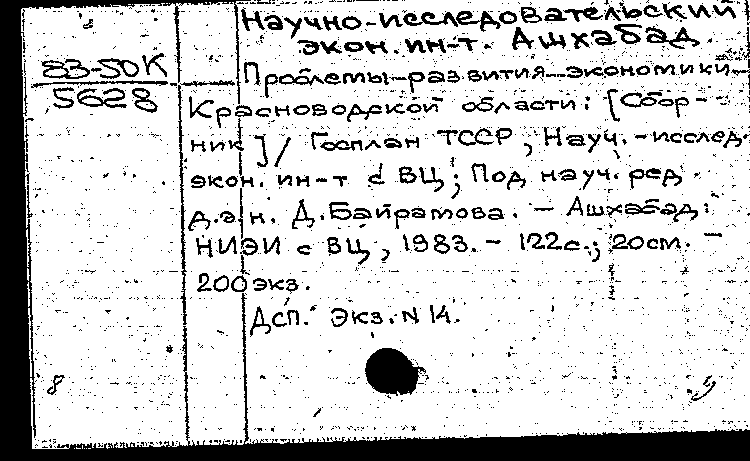 Научно-исследовательский
экон. ин-т. Ашхабад.
83-50К
5628
Проблемы развития экономики
Красноводской области: [Сбор-
ник]/ Госплан ТССР, Науч.-исслед.
экон. ин-т с ВЦ; Под науч. ред
д.э.н. Д. Байрамова. - Ашхабад:
НИЭИ с ВЦ, 1983. - 122с.; 20см. -
200экз.
Дсп. Экз. N 14.
8